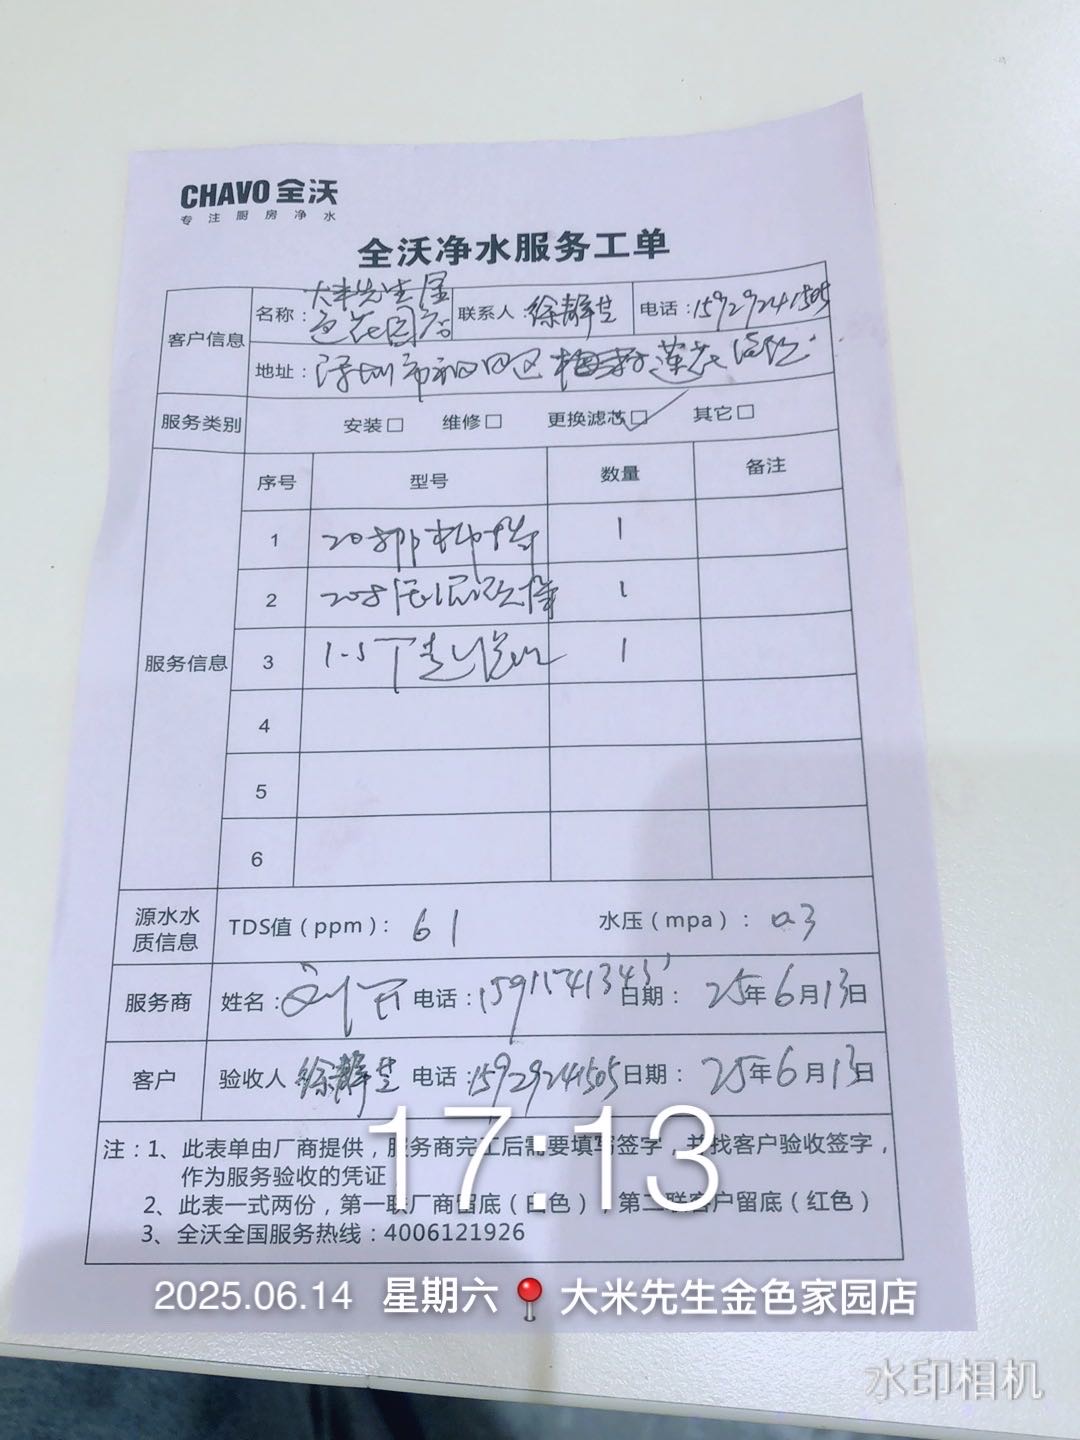 CHAVO 全沃
专注厨房净水
全沃净水服务工单
客户信息 名称：大米先生金色花园店 联系人 徐静芝 电话：15929241505
地址：深圳市福田区梅林莲花
服务类别 安装□ 维修□ 更换滤芯□✓ 其它□
服务信息 序号 型号 数量 备注
1 1
2 1
3 1
4
5
6
源水水质信息 TDS值（ppm）：61 水压（mpa）：0.3
服务商 姓名：刘 电话：15911741343 日期：25年6月13日
客户 验收人 徐静芝 电话：15929241505 日期：25年6月13日
注：1、此表单由厂商提供，服务商完工后需要填写签字，并找客户验收签字，
作为服务验收的凭证
2、此表一式两份，第一联厂商留底（白色），第二联客户留底（红色）
3、全沃全国服务热线：4006121926
17:13
2025.06.14 星期六 大米先生金色家园店
水印相机